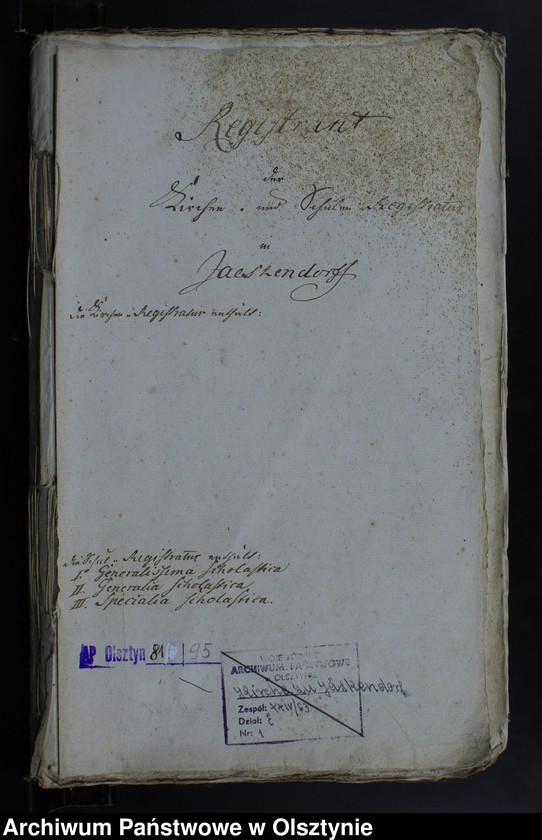 Registrant
der
Kirchen- und Schulen Registratur
in
Jaeskendorff
die Kirchen-Registratur enthält:
die Schul-Registratur enthält:
I. Generalissima scholastica
II. Generalia scholastica
III. Specialia scholastica.
AP Olsztyn 95
ARCHIWUM PAŃSTWOWE
OLSZTYNIE
Kirche zu Jäskendorf
Zespół:
Dział:
Nr: 1
Archiwum Państwowe w Olsztynie